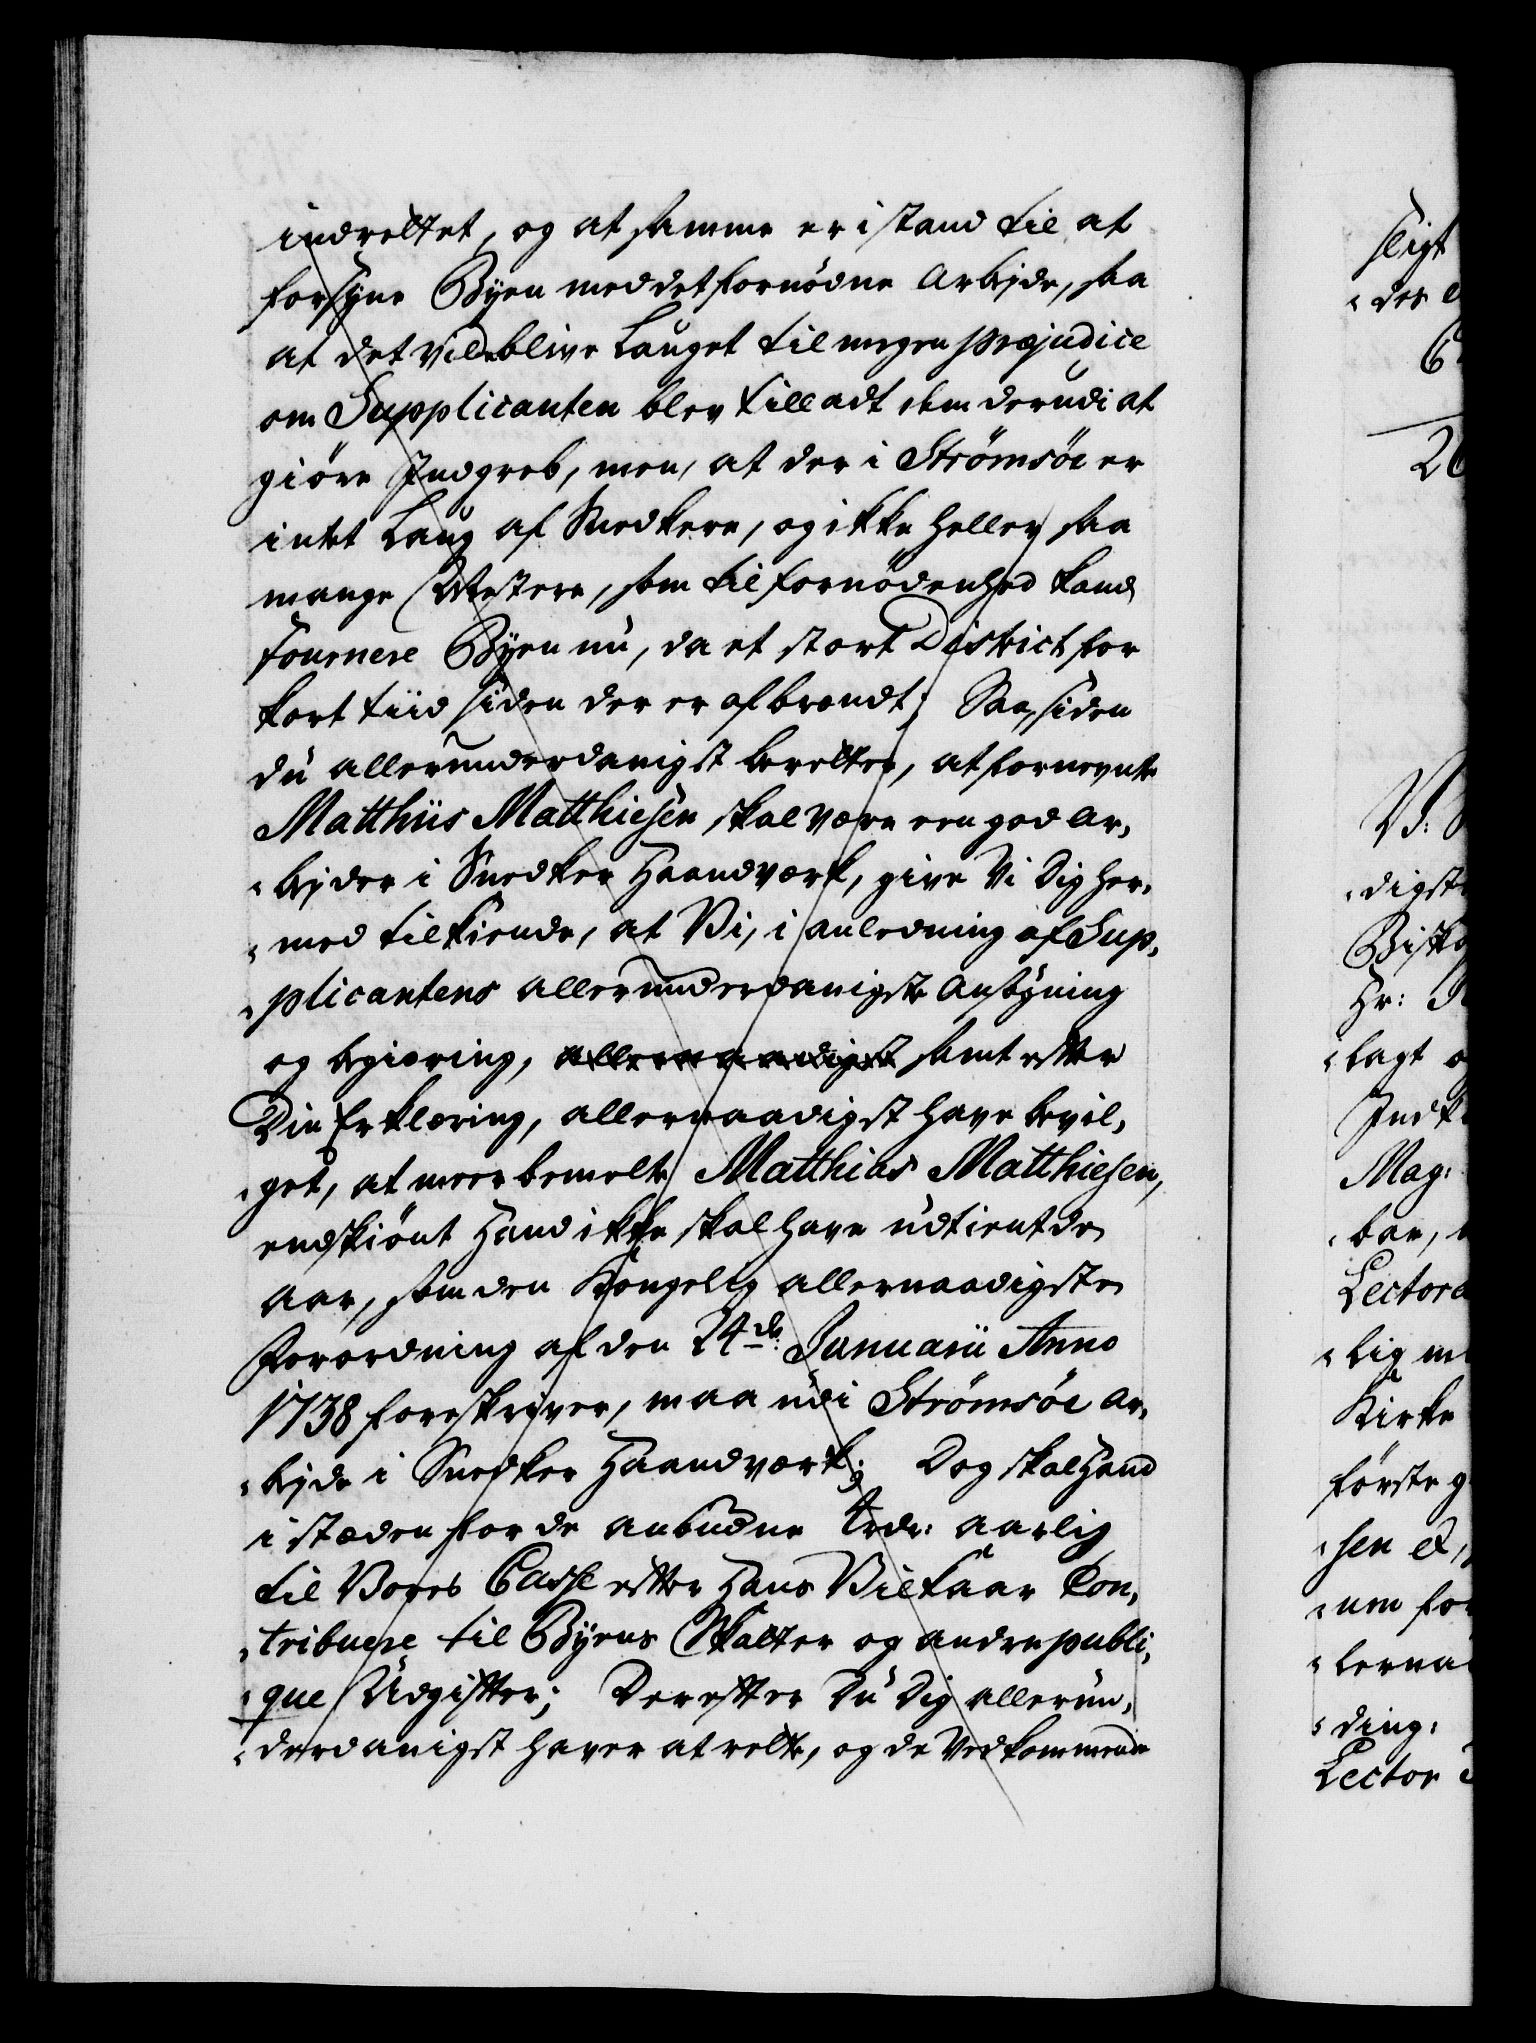 indrettet, og at samme er i stand til at
forsyne Byen med det fornødne Arbejde, saa
at det vil blive Lauget til megen præjudice
om Supplicanten blev tilladt dem derudi at
giöre Indgreb, men, at der i Strömsöe er
intet Laug af Snedkere, og ikke heller saa
mange Mestere, som til fornödenhed kand
fournere Byen nu, da et stort District for
kort tiid siden der er afbrændt; Saa, siden
du allerunderdanigst beretter, at fornevnte
Matthiis Matthiesen skal være een god Ar,
„bejder i Snedker Haandværk, give Vi Dig her,
„med tilkiende, at Vi, i anledning af Sup,
„plicantens allerunderdanigste Ansögning
og begiæring, allernaadigst samt efter
Din Erklæring, allernaadigst have bevil,
„get, at meerbemelte Matthias Matthiesen,
endskiönt Hand ikke skal have udtient de
Aar, som den Kongelig allernaadigste
Forordning af den 24de: Januarii Anno
1738 foreskriver, maa udi Strömsöe ar,
„bejde i Snedker Haandværk; Dog skal Hand
i stæden for de anbudne Trde: aarlig
til Vores Casse efter Hans Vilkaar Con,
„tribuere til Byens Skatter og andre publi,
„que Udgifter; Derefter Du Dig allerun,
„derdanigst haver at rette, og de Vedkommende
sligt
„des
26
V:
„digste
Hr:
„lagt
Mag:
„bar,
„lig
Kirke
förste
„sen
„nem
„ding:
Lector